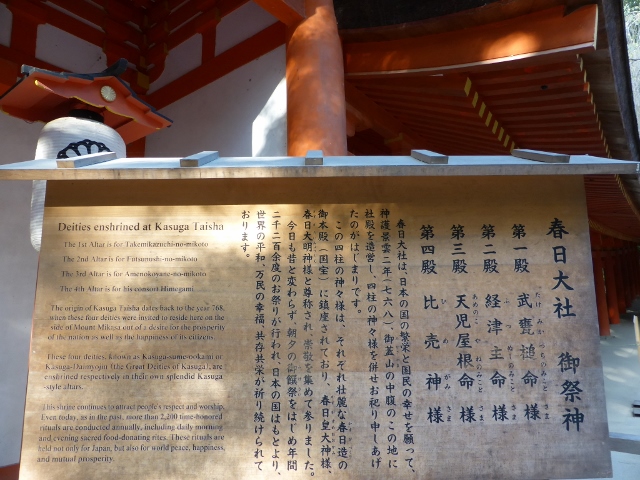 春日大社 御祭神
第一殿 武甕槌命様
第二殿 経津主命様
第三殿 天児屋根命様
第四殿 比売神様
春日大社は、日本の国の繁栄と国民の幸せを願って、
神護景雲二年(七六八)、御蓋山の中腹のこの地に
社殿を造営し、四柱の神々様を併せお祀り申しあげ
たのがはじまりです。
この四柱の神々様は、それぞれ壮麗な春日造の
御本殿(国宝)に鎮座されており、春日皇大神様、
春日大明神様と尊称され、崇敬を集めて参りました。
今日も昔と変わらず、朝夕の御饌祭をはじめ年間
二千二百余度のお祭りが行われ、日本の国はもとより、
世界の平和、万民の幸福、共存共栄が祈り続けられて
おります。
Deities enshrined at Kasuga Taisha
The 1st Altar is for Takemikazuchi-no-mikoto
The 2nd Altar is for Futsunushi-no-mikoto
The 3rd Altar is for Amenokoyane-no-mikoto
The 4th Altar is for his consort Himegami
The origin of Kasuga Taisha dates back to the year 768,
when these four deities were invited to reside here on the
side of Mount Mikasa out of a desire for the prosperity
of the nation as well as the happiness of its citizens.
These four deities, known as Kasuga-sumeookami or
Kasuga-Daimyojin (the Great Deities of Kasuga), are
enshrined respectively in their own splendid Kasuga
-style altars.
This shrine continues to attract people's respect and worship.
Even today, as in the past, more than 2,200 time-honored
rituals are conducted annually, including daily morning
and evening sacred food-donating rites. These rituals are
held not only for Japan, but also for world peace, happiness,
and mutual prosperity.